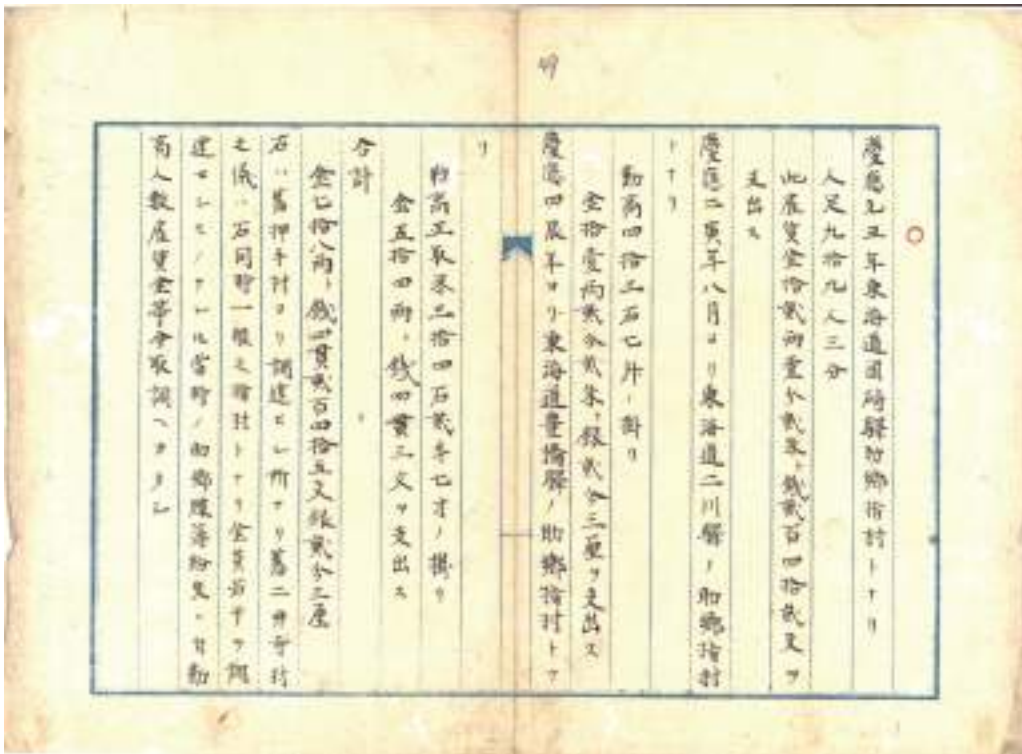 49
慶應元丑年東海道岡崎驛助郷指村トナリ
人足九拾九人三分
此雇賃金拾貳兩壹分貳朱、錢貳百四拾貳文ヲ
支出ス
慶應二寅年八月ヨリ東海道二川驛ノ助郷指村
トナリ
勤高四拾三石七斗ノ掛リ
金拾壹兩貳分貳朱、銀貳分三厘ヲ支出ス
慶應四辰年ヨリ東海道豊橋驛ノ助郷指村トナ
リ
勤高正取米三拾四石貳斗七才ノ掛リ
金五拾四兩、錢四貫三文ヲ支出ス
合計
金七拾八兩、錢四貫貳百四拾五文銀貳分三厘
右ハ舊押手村ヨリ調達セシ所ナリ舊二井寺村
之儀ハ右同時一般之指村トナリ金員若干ヲ調
達セシモノナレ𪜈當時ノ助郷帳簿紛失ハ付勤
高人数雇賃金等今取調ヘヨタシ